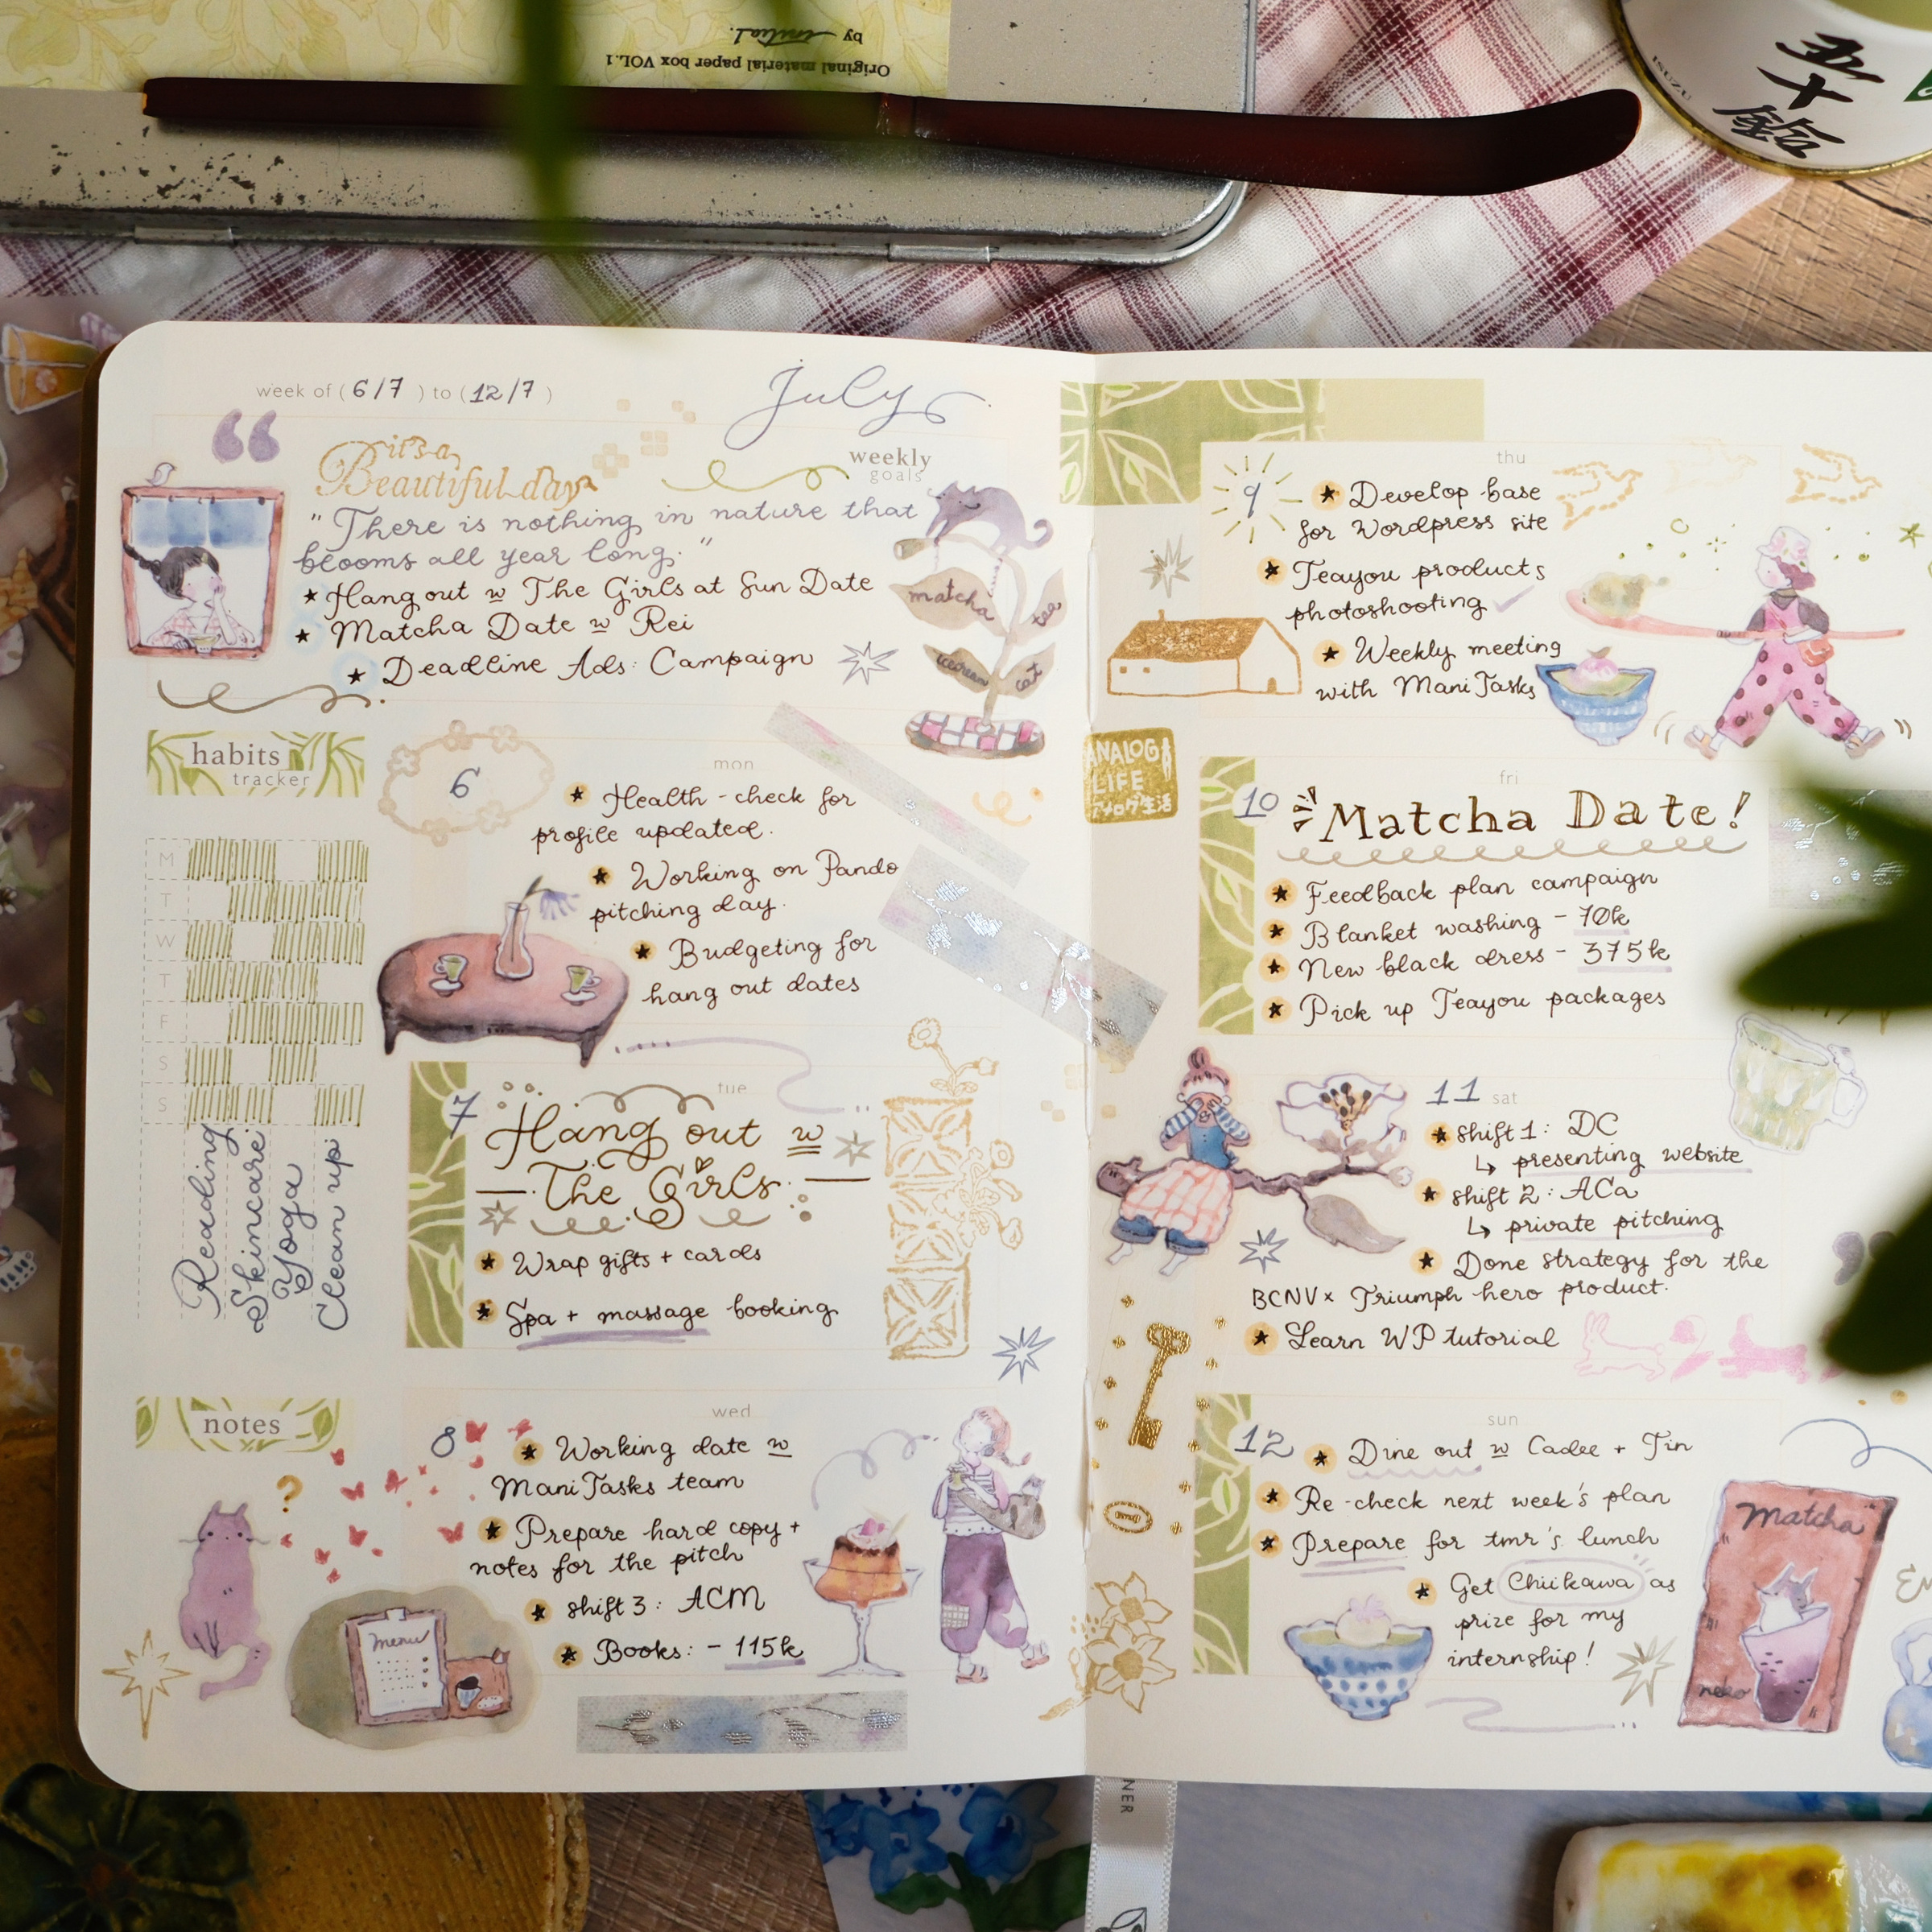 Original material paper box VOL.1
by initial.
五十鈴
ISUZU
week of ( 6/7 ) to ( 12/7 )
July
it's a
Beautiful day
weekly
goals
"There is nothing in nature that
blooms all year long."
Hang out w The Girls at Sun Date
Matcha Date w Rei
Deadline Ads: Campaign
matcha
tea
icecream
cat
habits
tracker
M
T
W
T
F
S
S
Reading
Skincare
Yoga
Clean up
notes
?
mon
6
Health-check for
profile updated.
Working on Pando
pitching day.
Budgeting for
hang out dates
tue
7
Hang out w
The Girls
Wrap gifts + cards
Spa + massage booking
wed
8
Working date w
ManiTasks team
Prepare hard copy +
notes for the pitch
shift 3: ACM
Books: - 115k
menu
ANALOG
LIFE
アナログ生活
thu
9
Develop base
for Wordpress site
Teayou products
photoshooting
Weekly meeting
with ManiTasks
fri
10
Matcha Date!
Feedback plan campaign
Blanket washing - 70k
New black dress - 375k
Pick up Teayou packages
11 sat
shift 1: DC
↳ presenting website
shift 2: ACa
↳ private pitching
Done strategy for the
BCNV x Triumph hero product.
Learn WP tutorial
sun
12
Dine out w Cadee + Tin
Re-check next week's plan
Prepare for tmr's lunch
Get Chiikawa as
prize for my
internship!
Matcha
neko
NER